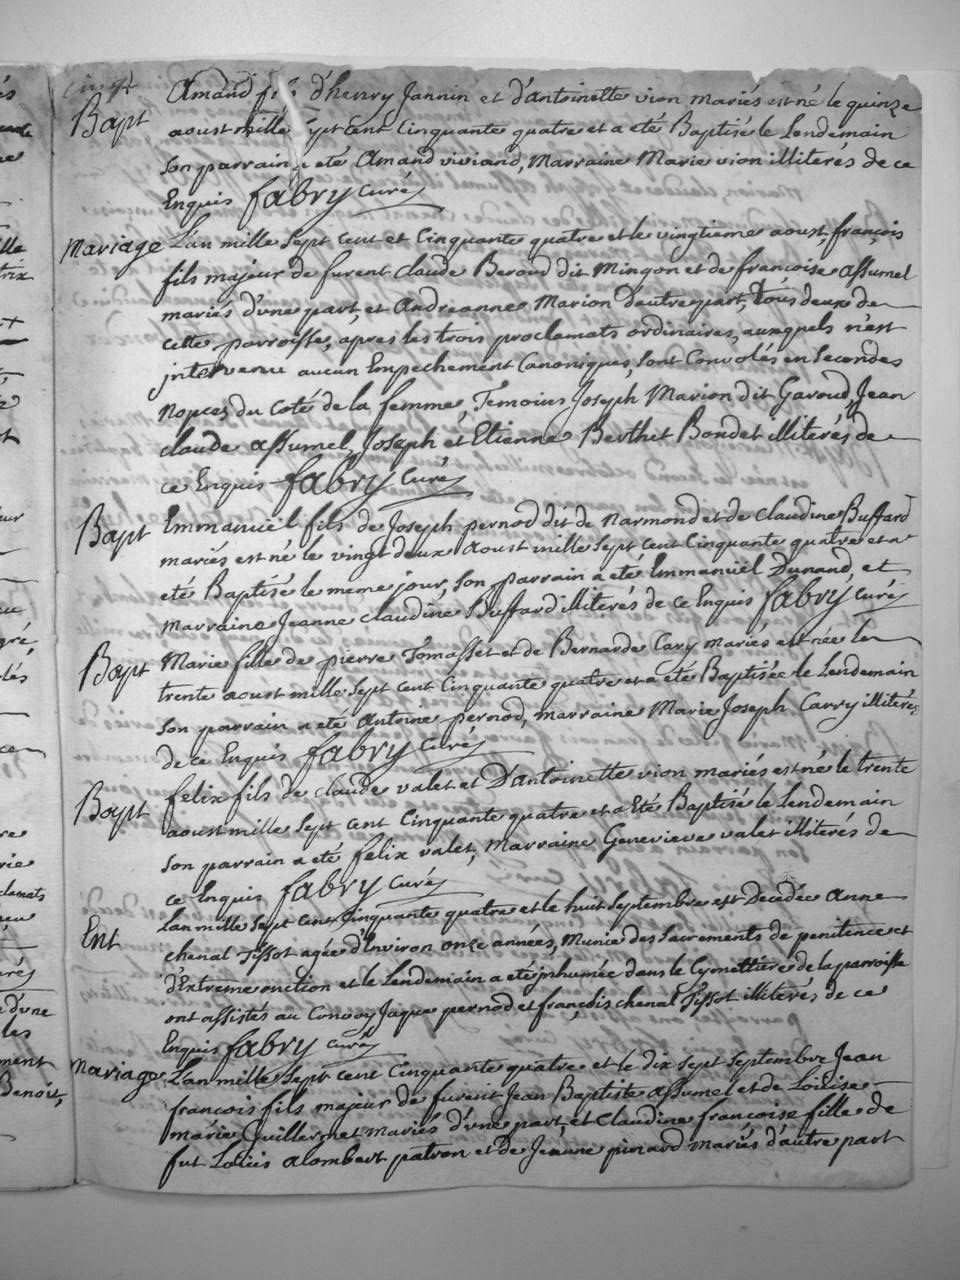 Bapt
Amand fils d'henry Jannin et d'antoinette vion mariés est né le quinze
aoust mille sept cent Cinquante quatre et a eté Baptisé le Lendemain
Son parrain a eté Amand viviand, Marraine Marie vion illiterés de ce
Enquis fabry Curé
Mariage
L'an mille Sept cent et Cinquante quatre et le vingtieme aoust, françois
fils majeur de furent Claude Beroud dit Mingon et de françoise assumel
mariés d'une part, et Andreanne Marion D'autre part, tous deux de
cette parroisse, apres les trois proclamats ordinaires, auxquels n'est
intervenu aucun Empechement Canoniques, Sont Convolés en Secondes
Nopces du Coté de la femme, Temoins Joseph Marion dit Garoud, Jean
claude assumel, Joseph et Etienne Berthet Bondet illiterés de
ce Enquis fabry Curé
Bapt
Emmanuël fils de Joseph pernod dit de Narmond et de Claudine Buffard
mariés est né le vingt deux aoust mille Sept cent Cinquante quatre et a
eté Baptisé le meme jour, Son parrain a eté Emmanuël Dunand, et
Marraine Jeanne Claudine Buffard illiterés de ce Enquis fabry Curé
Bapt
Marie fille de pierre Tomasset et de Bernarde Cary mariés est née le
trente aoust mille Sept cent Cinquante quatre et a eté Baptisée le Lendemain
Son parrain a eté Antoine pernod, marraine Marie Joseph Carry illiterés
de ce Enquis fabry Curé
Bapt
felix fils de Claude valet et D'antoinette vion mariés est né le trente
aoust mille Sept cent Cinquante quatre et a Eté Baptisé le Lendemain
Son parrain a eté felix valet, Marraine Genevieve valet illiterés de
ce Enquis fabry Curé
Ent
L'an mille Sept cent Cinquante quatre et le huit Septembre est Decedée Anne
chenal Tissot agée d'Environ onze années, Munie des Sacrements de penitence et
d'Extreme onction et le Lendemain a eté jnhumée dans le Cymettiere de la parroisse
ont assistés au Convoy Jaque pernod et françois chenal Tissot illiterés de ce
Enquis fabry Curé
Mariage
L'an mille Sept cent Cinquante quatre et le Dix Sept Septembre Jean
francois fils majeur de furent Jean Baptiste assumel et de Loüise
marie Guillermet mariés d'une part, et Claudine françoise fille de
fut Loüis alombert patron et de Jeanne pinard mariés d'autre part